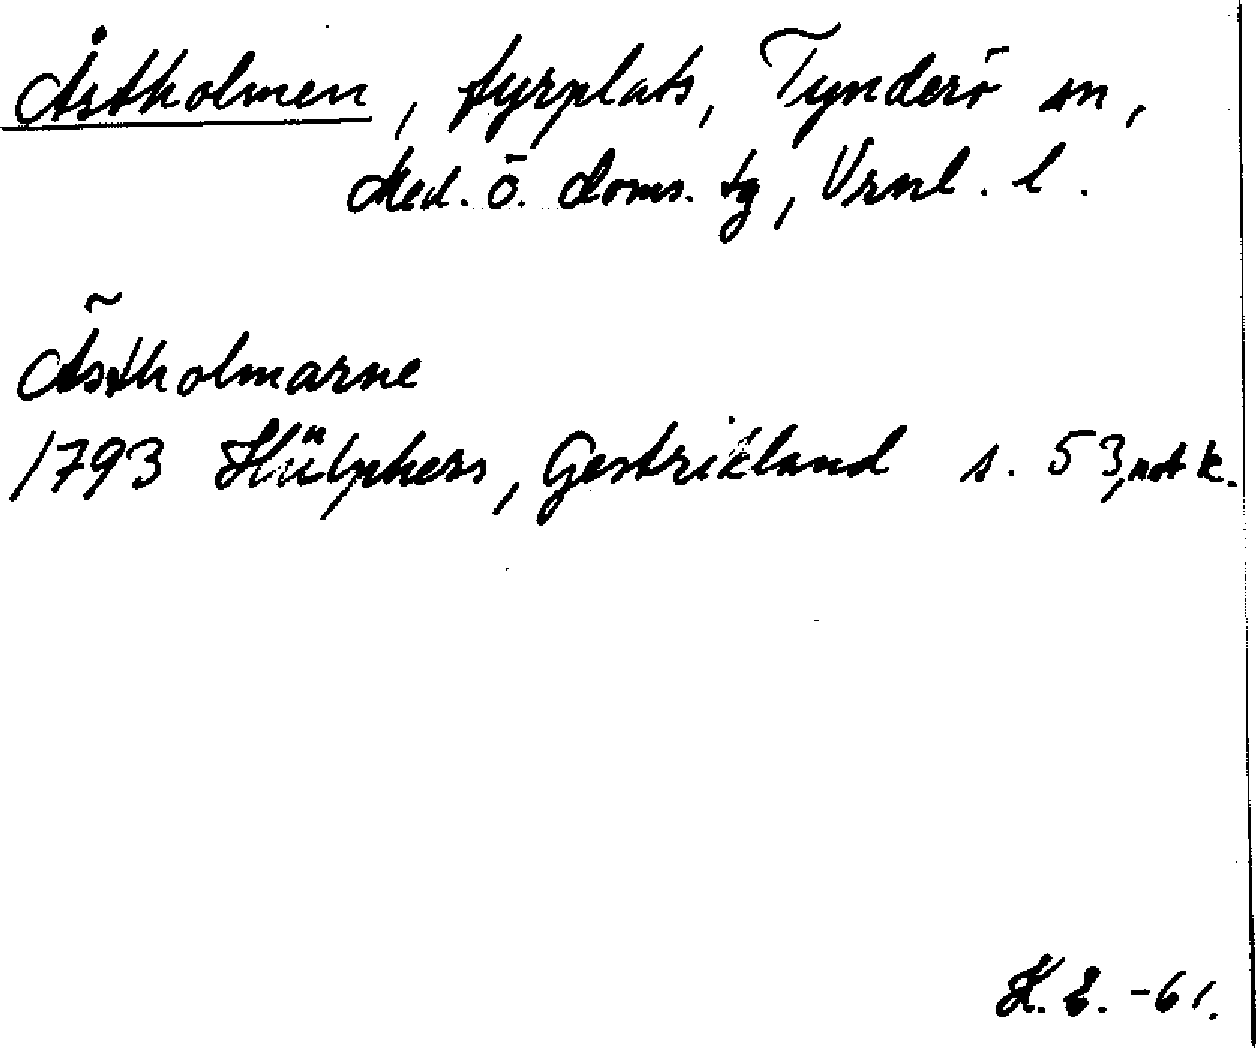 Åstholmen, fyrplats, Tynderö sn,
Med. ö. doms. tg, Vrnl. l.
Ästholmarne
1793 Hülphers, Gestrikland s. 53, not k.
K. E. -61.